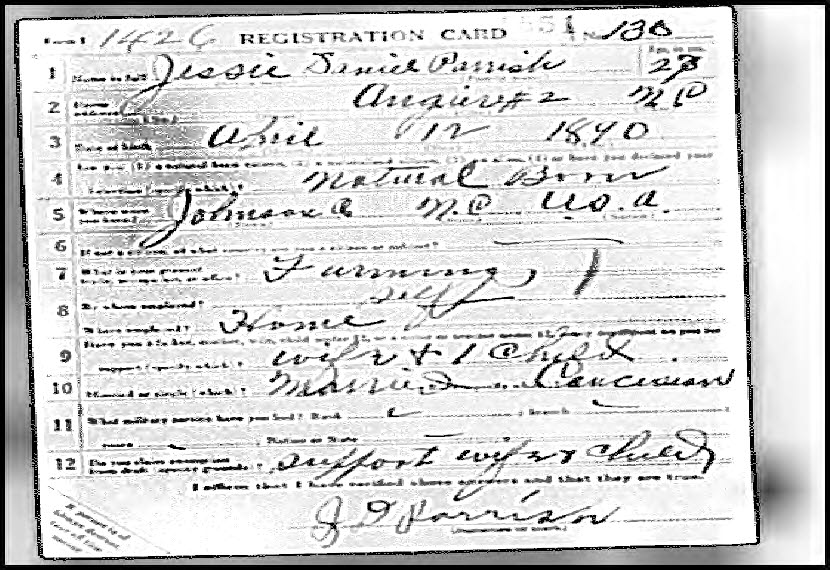 Form 1 1426 REGISTRATION CARD No. 130
1 Name in full Jessie Daniel Parrish Age, in yrs. 27
2 Home address Angier #2 N C
3 Date of birth April 12 1890
4 Natural Born
5 Where were you born? Johnson Co N.C. U.S.A.
6 If not a citizen, of what country are you a citizen or subject?
7 What is your present trade, occupation, or office? Farming, 1
8 By whom employed? self
Where employed? Home
9 Have you a father, mother, wife, child under 12, or a sister or brother under 12, solely dependent on you for
support (specify which)? wife & 1 child
10 Married or single (which)? Married Caucasian
11 What military service have you had? Rank Branch
years Nation or State
12 Do you claim exemption from draft (specify grounds)? support wife & child
I affirm that I have verified above answers and that they are true.
J D Parrish